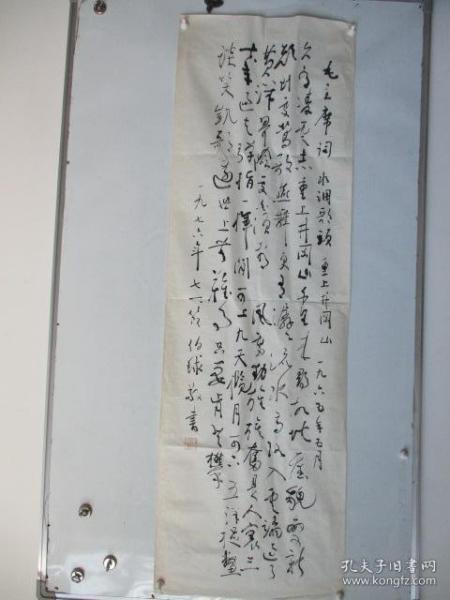 毛主席词 水调歌头 重上井冈山 一九六五年五月
久有凌云志重上井冈山千里来寻故地旧貌变新
颜到处莺歌燕舞更有潺潺流水高路入云端过了
黄洋界险处不须看 风雷动旌旗奋是人寰三
十八年过去弹指一挥间可上九天揽月可下五洋捉鳖
谈笑凯歌还世上无难事只要肯登攀
一九七六年七一节 伯球敬书
孔夫子旧书网
www.kongfz.com